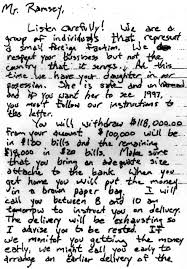 Mr. Ramsey,
Listen Carefully! We are a
group of individuals that represent
a small foreign faction. We do
respect your bussiness but not the
country that it serves. At this
time we have your daughter in our
posession. She is safe and unharmed
and if you want her to see 1997,
you must follow our instructions to
the letter.
You will withdraw $118,000.00
from your account. $100,000 will be
in $100 bills and the remaining
$18,000 in $20 bills. Make sure
that you bring an adequate size
attache to the bank. When you
get home you will put the money
in a brown paper bag. I will
call you between 8 and 10 am
tomorrow to instruct you on delivery.
The delivery will be exhausting so
I advise you to be rested. If
we monitor you getting the money
early, we might call you early to
arrange an earlier delivery of the